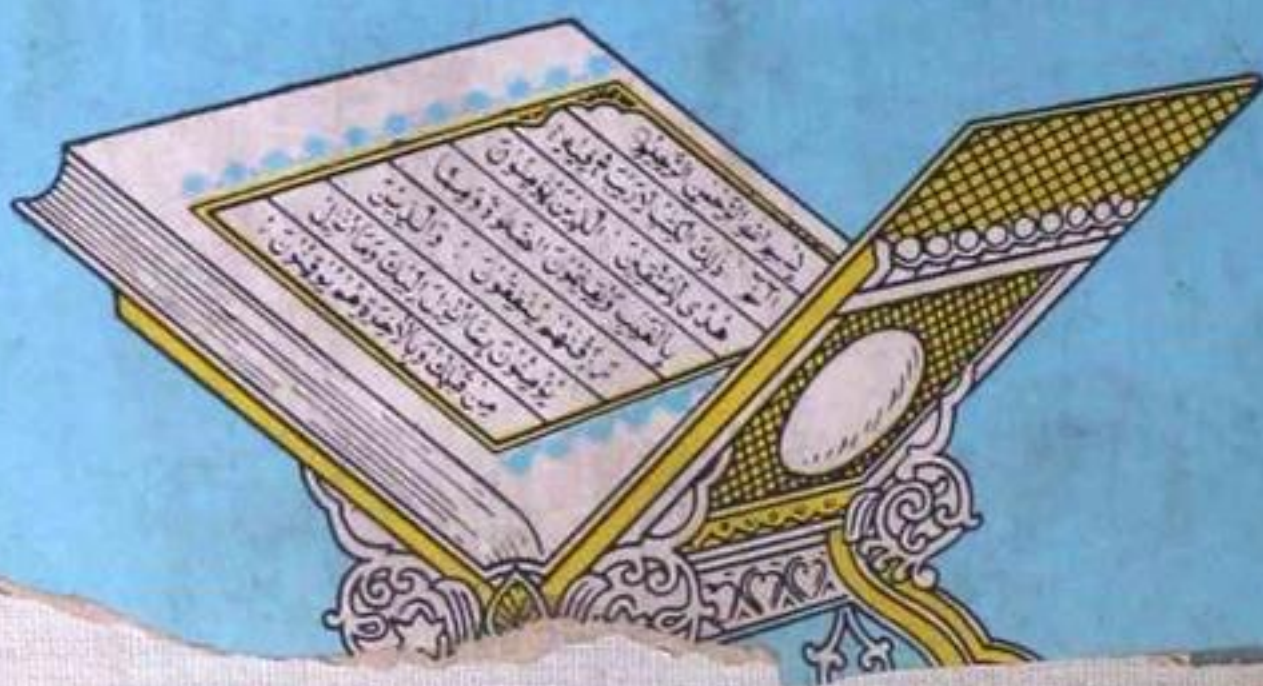 بِسْمِ اللهِ الرَّحْمٰنِ الرَّحِيْمِ
الٓمّٓ ذٰلِكَ الْكِتٰبُ لَا رَيْبَ فِيْهِ
هُدًى لِّلْمُتَّقِيْنَ الَّذِيْنَ يُؤْمِنُوْنَ
بِالْغَيْبِ وَيُقِيْمُوْنَ الصَّلٰوةَ وَمِمَّا
رَزَقْنٰهُمْ يُنْفِقُوْنَ وَالَّذِيْنَ
يُؤْمِنُوْنَ بِمَا اُنْزِلَ اِلَيْكَ وَمَا اُنْزِلَ
مِنْ قَبْلِكَ وَبِالْاٰخِرَةِ هُمْ يُوْقِنُوْنَ